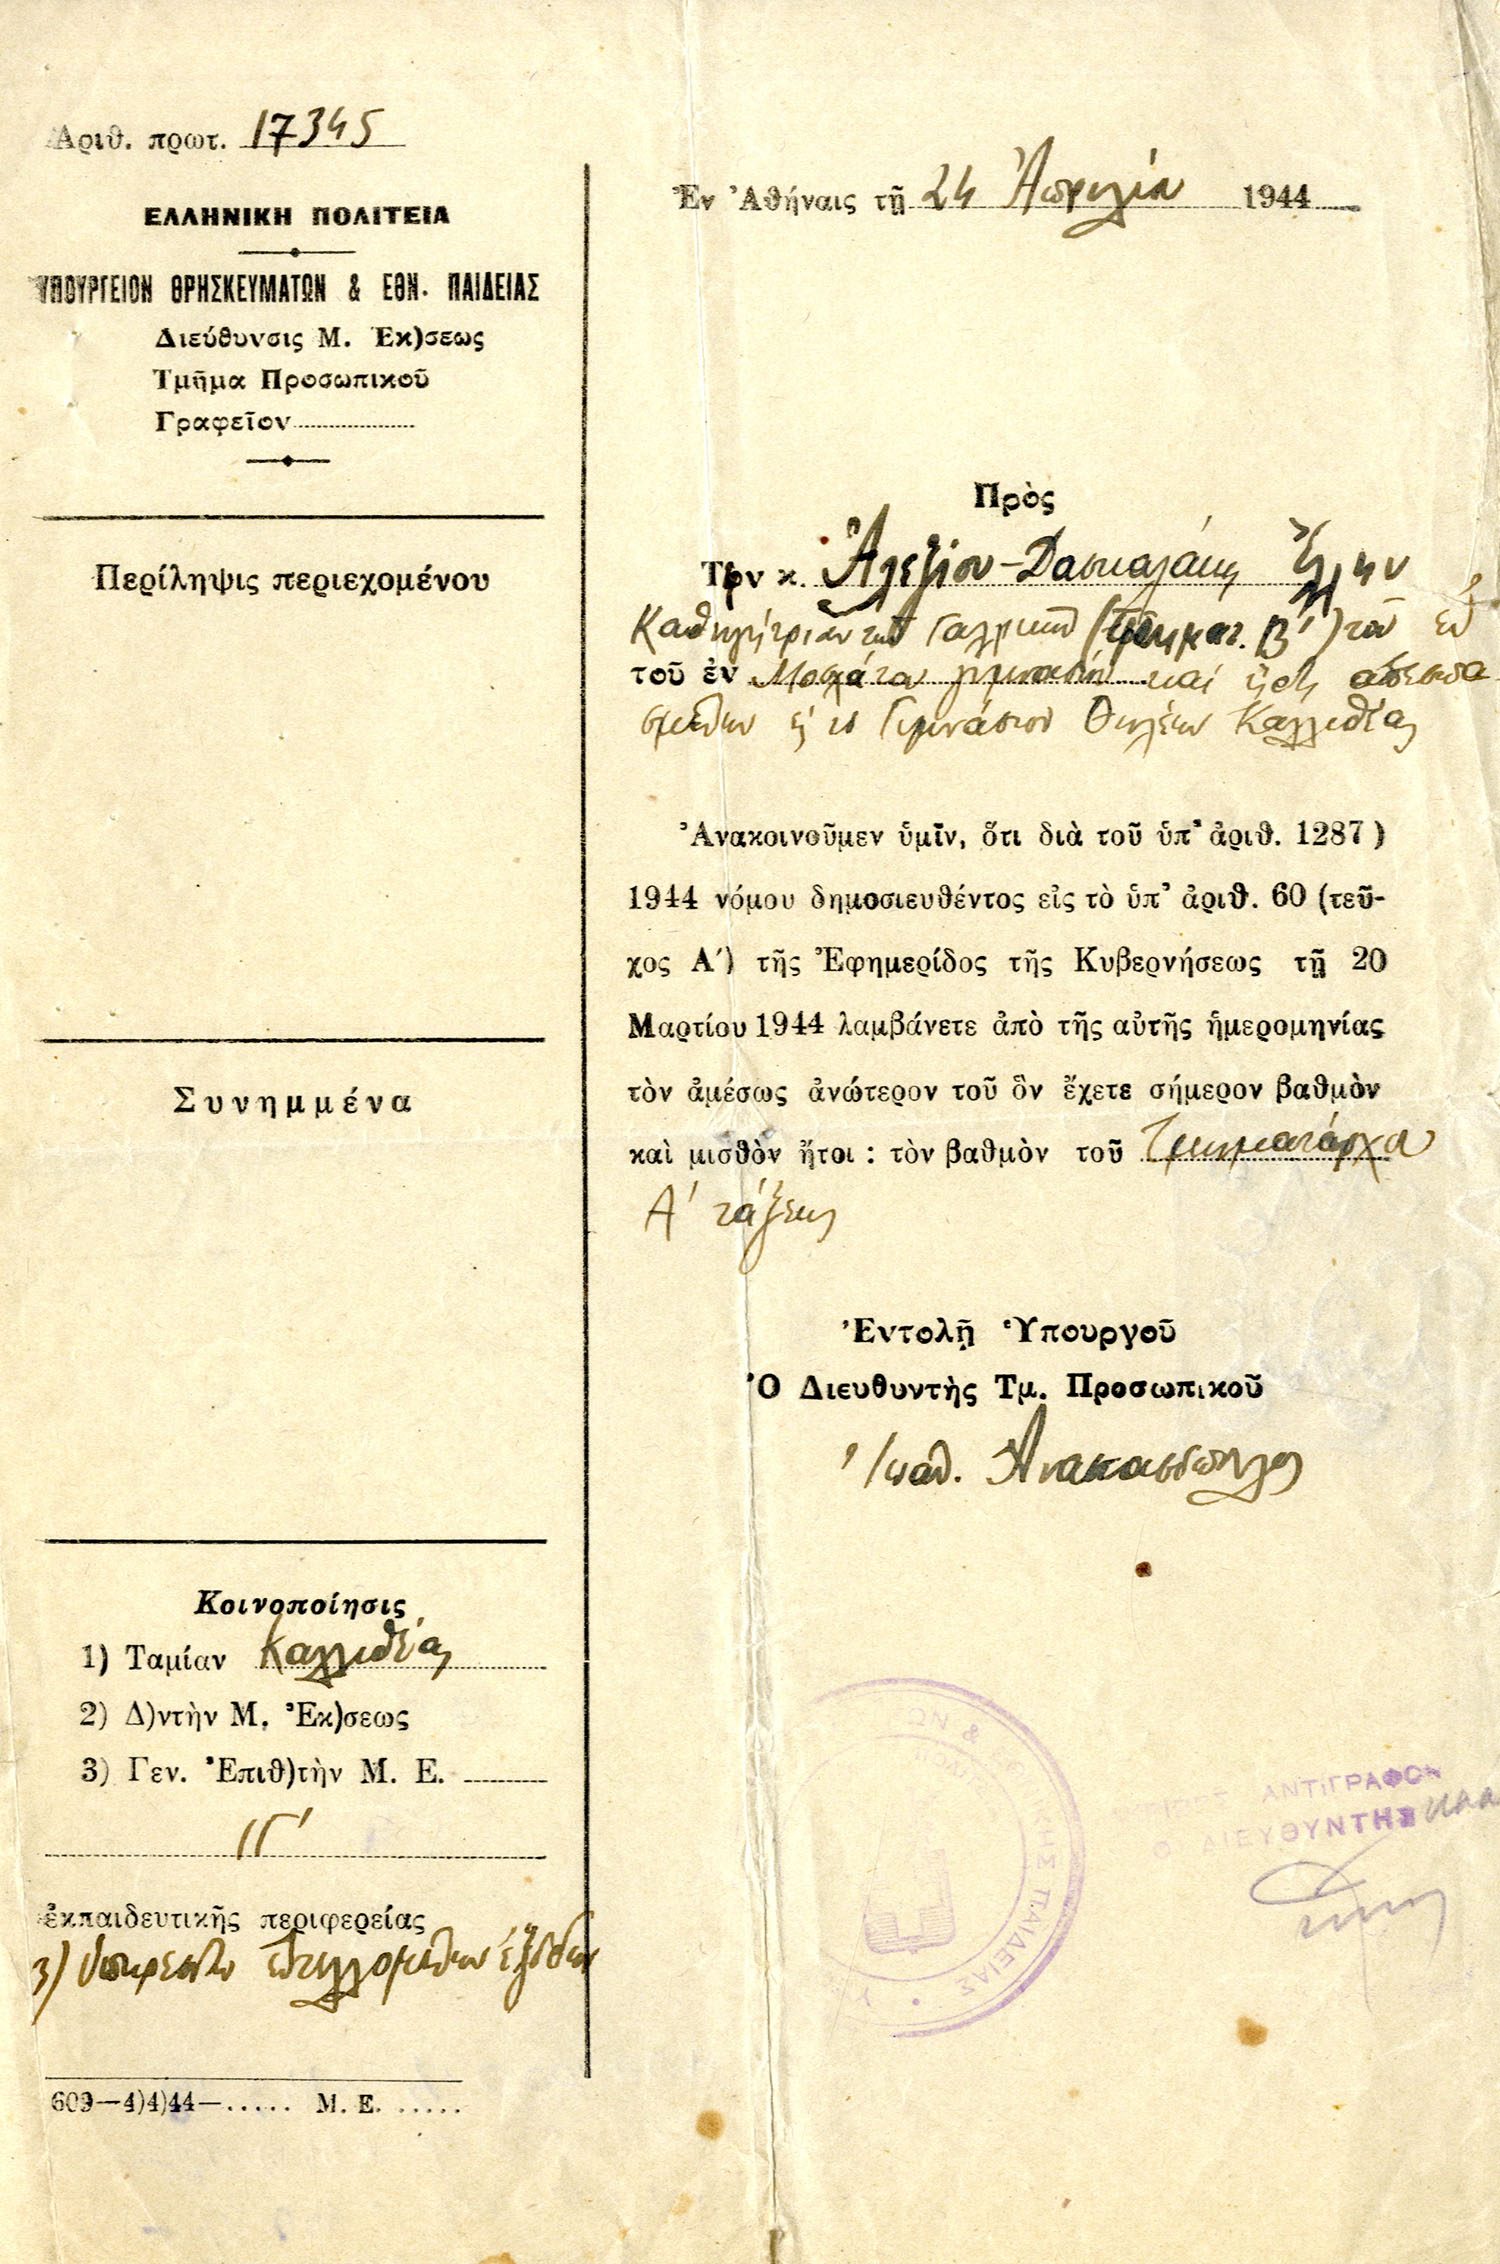 Ἀριθ. πρωτ. 17345
ΕΛΛΗΝΙΚΗ ΠΟΛΙΤΕΙΑ
ΥΠΟΥΡΓΕΙΟΝ ΘΡΗΣΚΕΥΜΑΤΩΝ & ΕΘΝ. ΠΑΙΔΕΙΑΣ
Διεύθυνσις Μ. Ἐκ)σεως
Τμῆμα Προσωπικοῦ
Γραφεῖον
Περίληψις περιεχομένου
Συνημμένα
Κοινοποίησις
1) Ταμίαν Καλλιθέας
2) Δ)ντὴν Μ. Ἐκ)σεως
3) Γεν. Ἐπιθ)τὴν Μ. Ε.
Γ'
ἐκπαιδευτικῆς περιφερείας
3)
609—4)4)44—..... Μ. Ε. .....
Ἐν Ἀθήναις τῇ 24 Ἀπριλίου 1944
Πρὸς
Τὴν κ. Ἀλεξίου-Δασκαλάκη Ἕλλην
Καθηγήτριαν τῶν Γαλλικῶν (Τμηματ. Β')
τοῦ ἐν Μοσχάτῳ γυμνασίου καὶ ἤδη ἀπεσπα
σμένην εἰς τὸ Γυμνάσιον Θηλέων Καλλιθέας
Ἀνακοινοῦμεν ὑμῖν, ὅτι διὰ τοῦ ὑπ' ἀριθ. 1287)
1944 νόμου δημοσιευθέντος εἰς τὸ ὑπ' ἀριθ. 60 (τεῦ-
χος Α') τῆς Ἐφημερίδος τῆς Κυβερνήσεως τῇ 20
Μαρτίου 1944 λαμβάνετε ἀπὸ τῆς αὐτῆς ἡμερομηνίας
τὸν ἀμέσως ἀνώτερον τοῦ ὃν ἔχετε σήμερον βαθμὸν
καὶ μισθὸν ἤτοι : τὸν βαθμὸν τοῦ Τμηματάρχου
Α' τάξεως
Ἐντολῇ Ὑπουργοῦ
Ὁ Διευθυντὴς Τμ. Προσωπικοῦ
ΩΝ & ΕΘΝΙΚΗΣ ΠΑΙΔΕΙΑΣ
ΑΝΤΙΓΡΑΦΟΝ
Ο ΔΙΕΥΘΥΝΤΗΣ